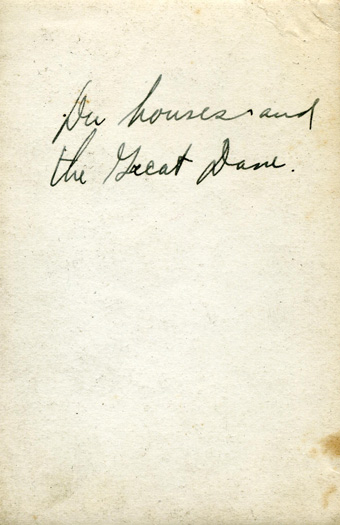 houses and
the Great Dane.